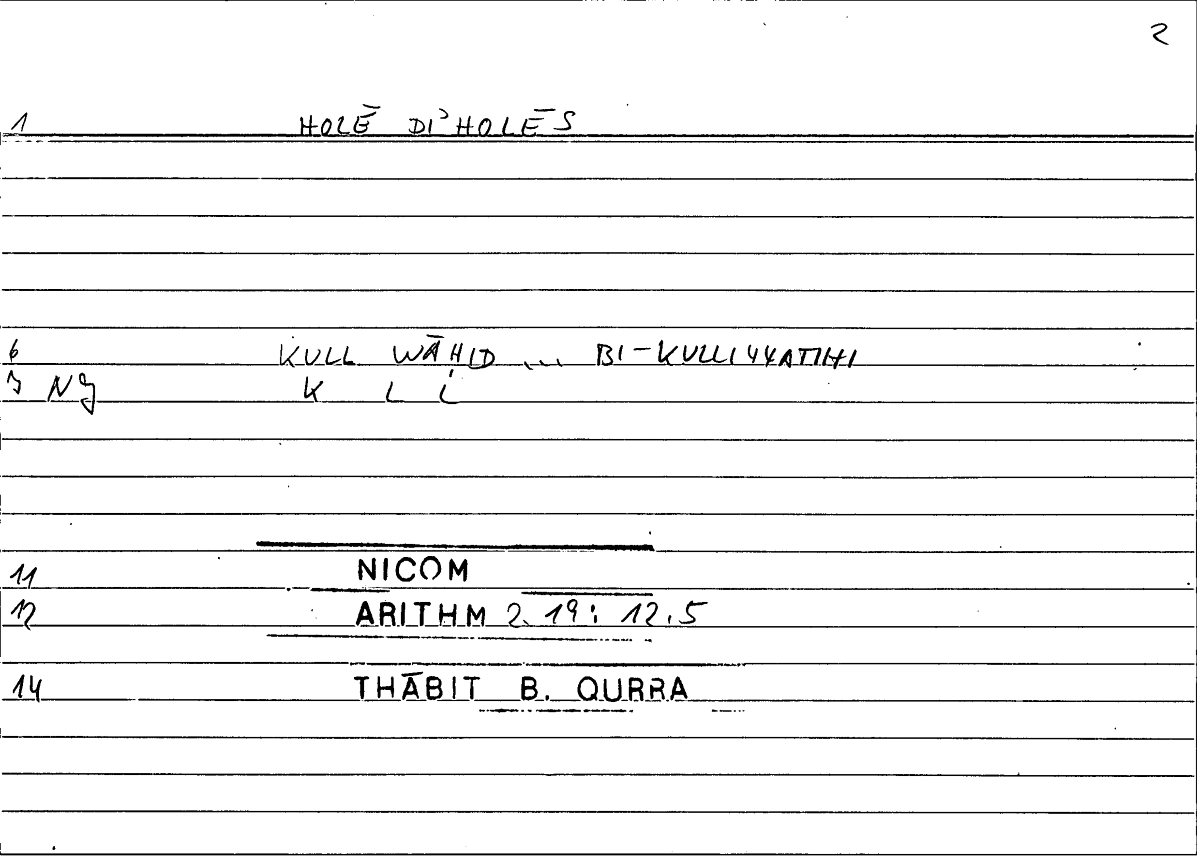 2
1 HOLĒ DI' HOLĒS
6 KULL WĀHID ... BI-KULLIYYATIHI
7 NJ K L L
11 NICOM
12 ARITHM 2.19: 12.5
14 THĀBIT B. QURRA